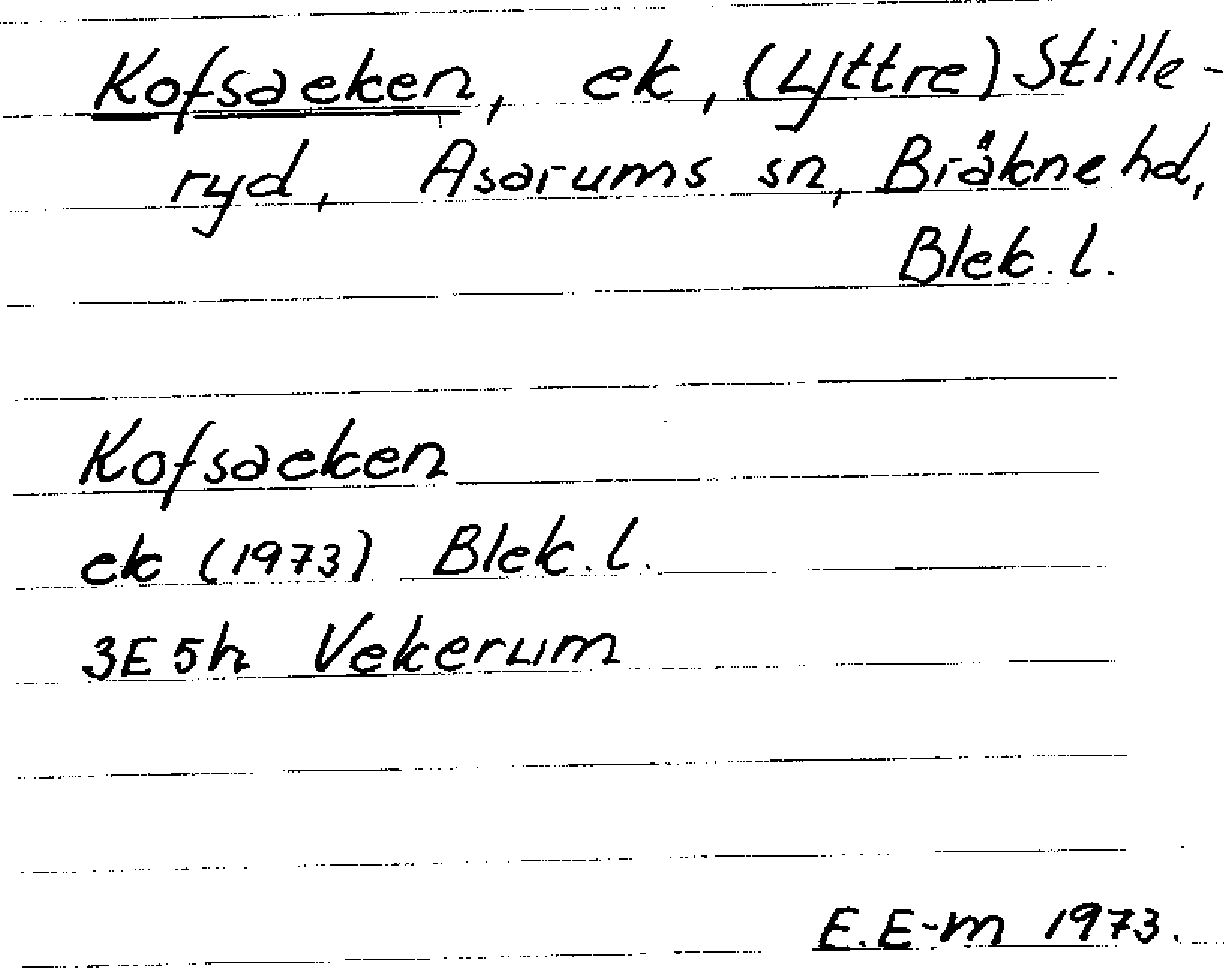 Kofsaeken, ek, (Yttre) Stille-
ryd, Asarums sn, Bräkne hd,
Blek. l.
Kofsaeken
ek (1973) Blek. l.
3E5h Vekerum
E.E-m 1973.